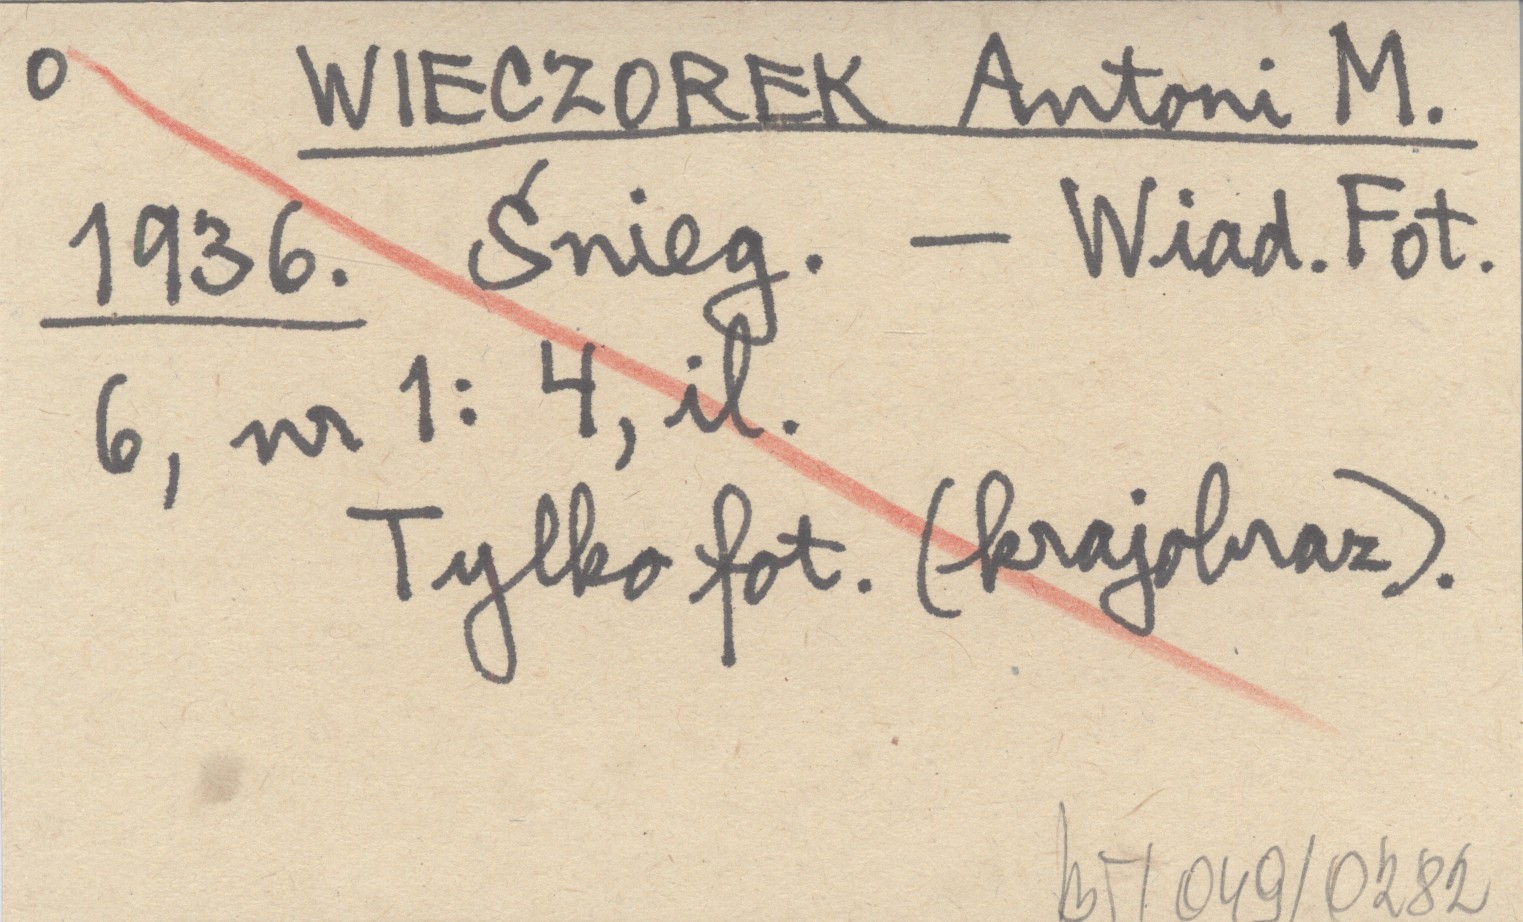 o WIECZOREK Antoni M.
1936. Śnieg. — Wiad. Fot.
6, nr 1: 4, il.
Tylko fot. (krajobraz).
bT/049/0282